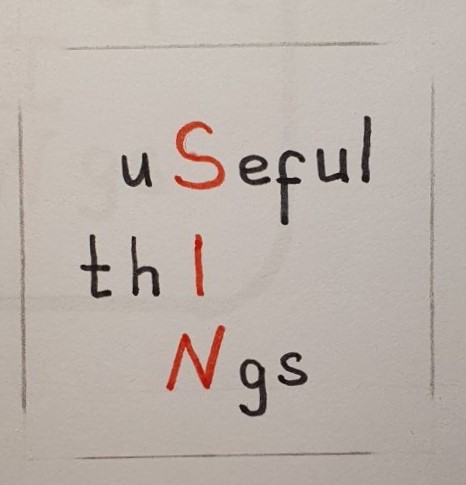 uSeful
thI
Ngs